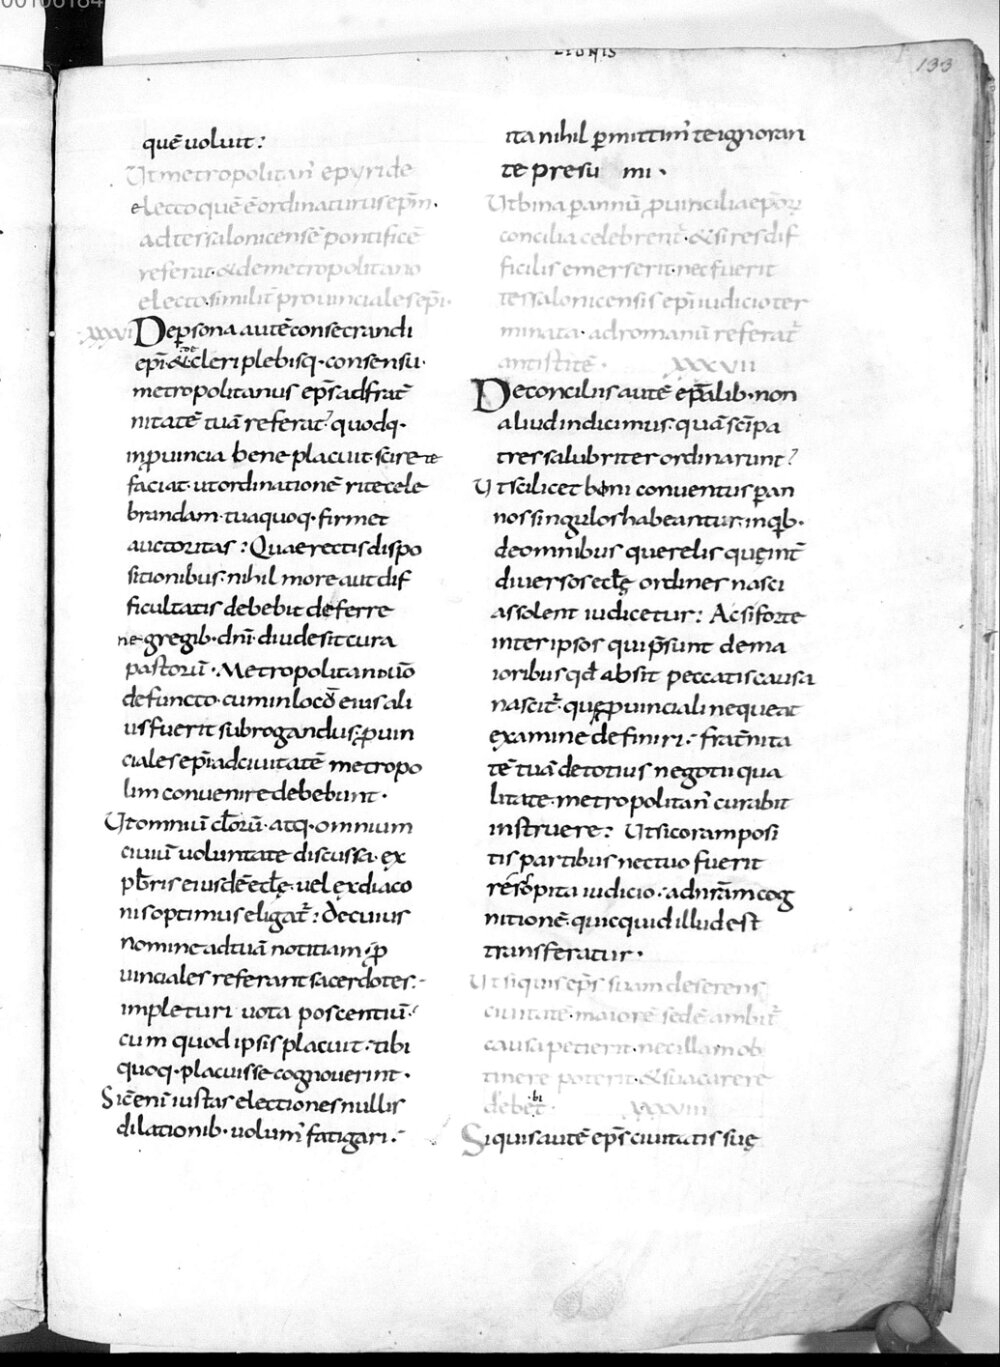 LIONIS
133
quē uoluit :
Ut metropolitan' epyri de
electo quē ē ordinaturus ep̄m.
ad tessalonicensē pontificē
referat · & de metropolitano
electo · similit̄ prouinciales ep̄i ·
XXXVI De p̱sona autē consecrandi
ep̄i · & cleri plebisq· consensu ·
metropolitanus ep̄s ad frat̄
nitatē tuā referat · quodq·
in ꝓuincia bene placuit · scire te
faciat · ut ordinationē rite cele
brandam · tua quoq· firmet
auctoritas : Quae rectis dispo
sitionibus · nihil more aut dif
ficultatis debebit deferre
ne gregib· dn̄i · diu desit cura
pastorū · Metropolitano uō
defuncto · cum in locō eius ali
us fuerit subrogandus · ꝓuin
ciales ep̄i ad ciuitatē metropo
lim conuenire debebunt ·
Ut omniū cl̄orū · atq· omnium
ciuiū uoluntate discussa · ex
pb̄ris eiusdē eccl̄ę · uel ex diaco
nis optimus eligat̄ : de cuius
nomine ad tuā notitiam · ꝓ
uinciales referant sacerdotes :
impleturi uota poscentiū ·
cum quod ipsis placuit · tibi
quoq· placuisse cognouerint ·
Sic̄ eni iustas electiones nullis
dilationib· uolum' fatigari :
ita nihil p̱mittim' te ignoran
te presu mi ·
Ut bina p̱ annū ꝓuincilia ep̄oꝝ
concilia celebrent̄ · & si res dif
ficilis emerserit · nec fuerit
tessalonicensis ep̄i iudicio ter
minata · ad romanū referat̄
antistitē · XXXVII
De conciliis autē ep̄alib· non
aliud indicimus · quā sc̄i pa
tres salubriter ordinarunt ?
Ut scilicet bini conuentus p̱ an
nos singulos habeantur · in q̱b·
de omnibus querelis quę int̄
diuersos eccl̄ę ordines nasci
assolent iudicetur : Ac si forte
inter ipsos qui p̄sunt de ma
ioribus qd̄ absit peccatis causa
nascit̄ · quę ꝓuinciali nequeat
examine definiri : frat̄nita
tē tuā de totius negotii qua
litate · metropolitan' curabit
instruere : Ut si coram posi
tis partibus nec tuo fuerit
res sopita iudicio : ad nr̄am cog
nitionē · quicquid illud est
transferatur ·
Ut si quis ep̄s suam deserens
ciuitatē · maiorē sedē ambit̄
causa petierit · nec illam ob
tinere poterit · & sua carere
debebit · XXXVIII
Si quis autē ep̄s ciuitatis suę